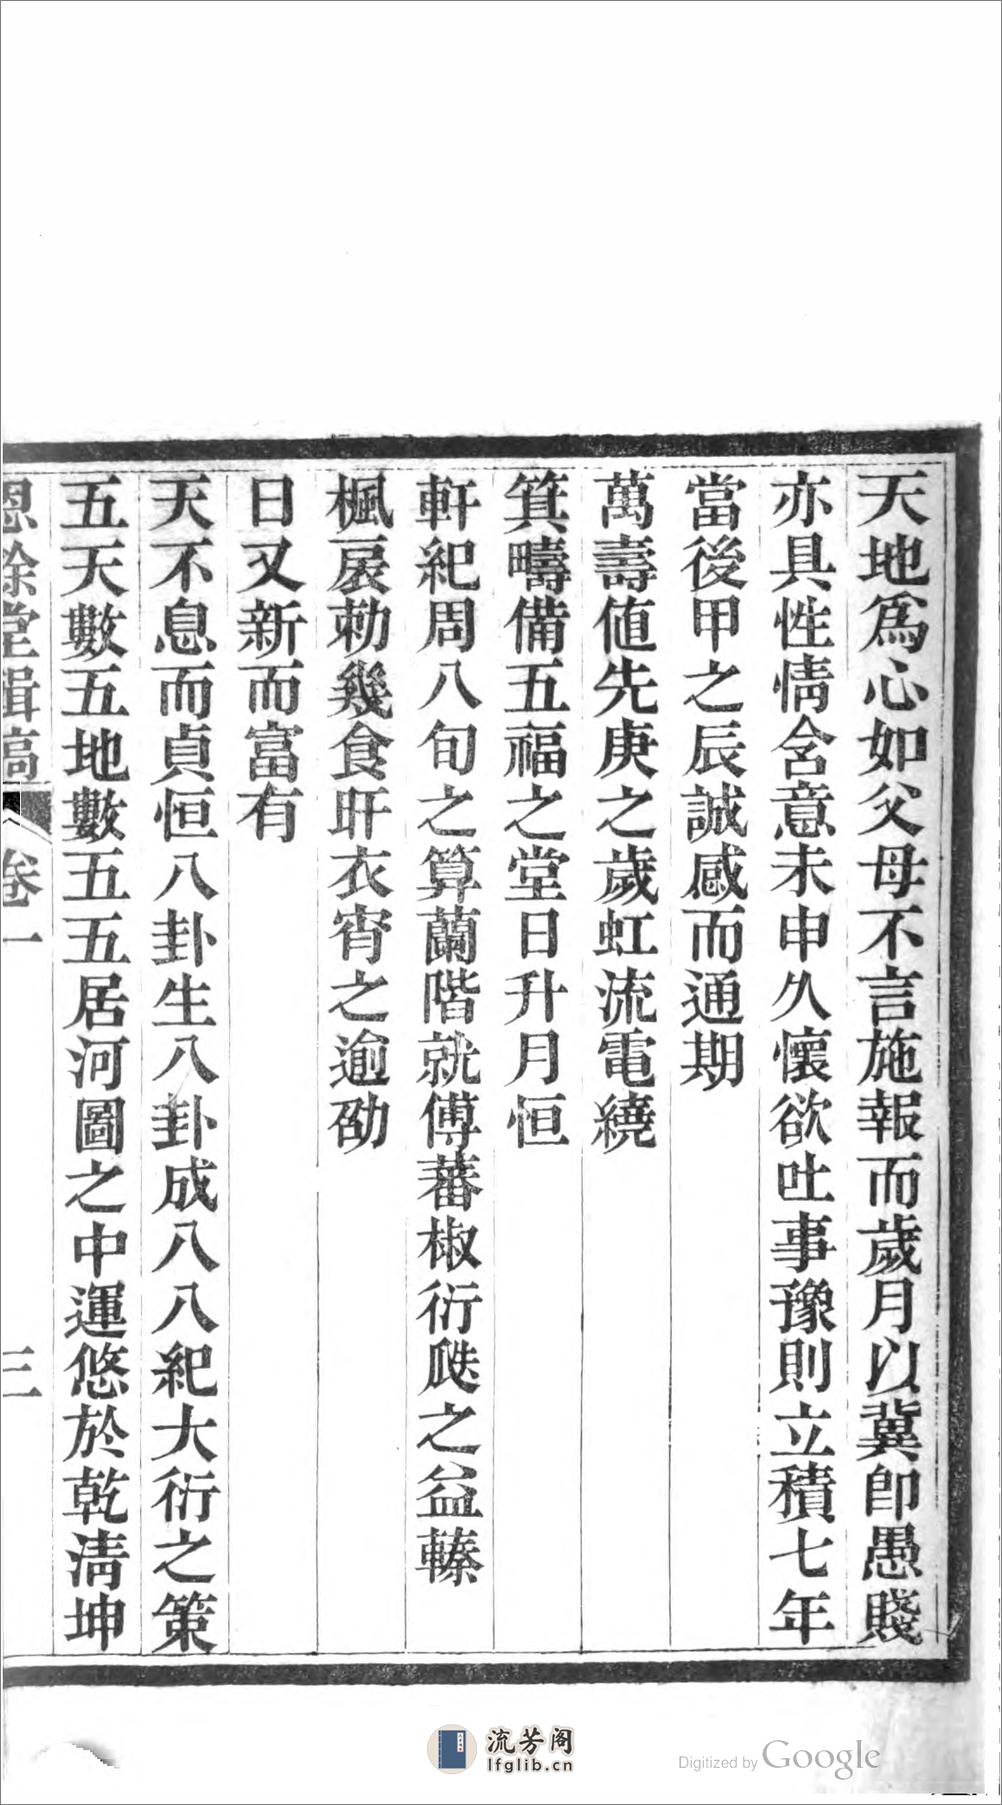 天地爲心如父母不言施報而歲月以冀卽愚賤
亦具性情含意未申久懷欲吐事豫則立積七年
當後甲之辰誠感而通期
萬壽値先庚之歲虹流電繞
箕疇備五福之堂日升月恒
軒紀周八旬之算蘭階就傅蕃椒衍瓞之益臻
楓扆勑幾食旰衣宵之逾劭
日又新而富有
天不息而貞恒八卦生八卦成八八紀大衍之策
五天數五地數五五居河圖之中運悠於乾淸坤
恩餘堂輯稿
卷一
三
流芳阁
lfglib.cn
Digitized by Google